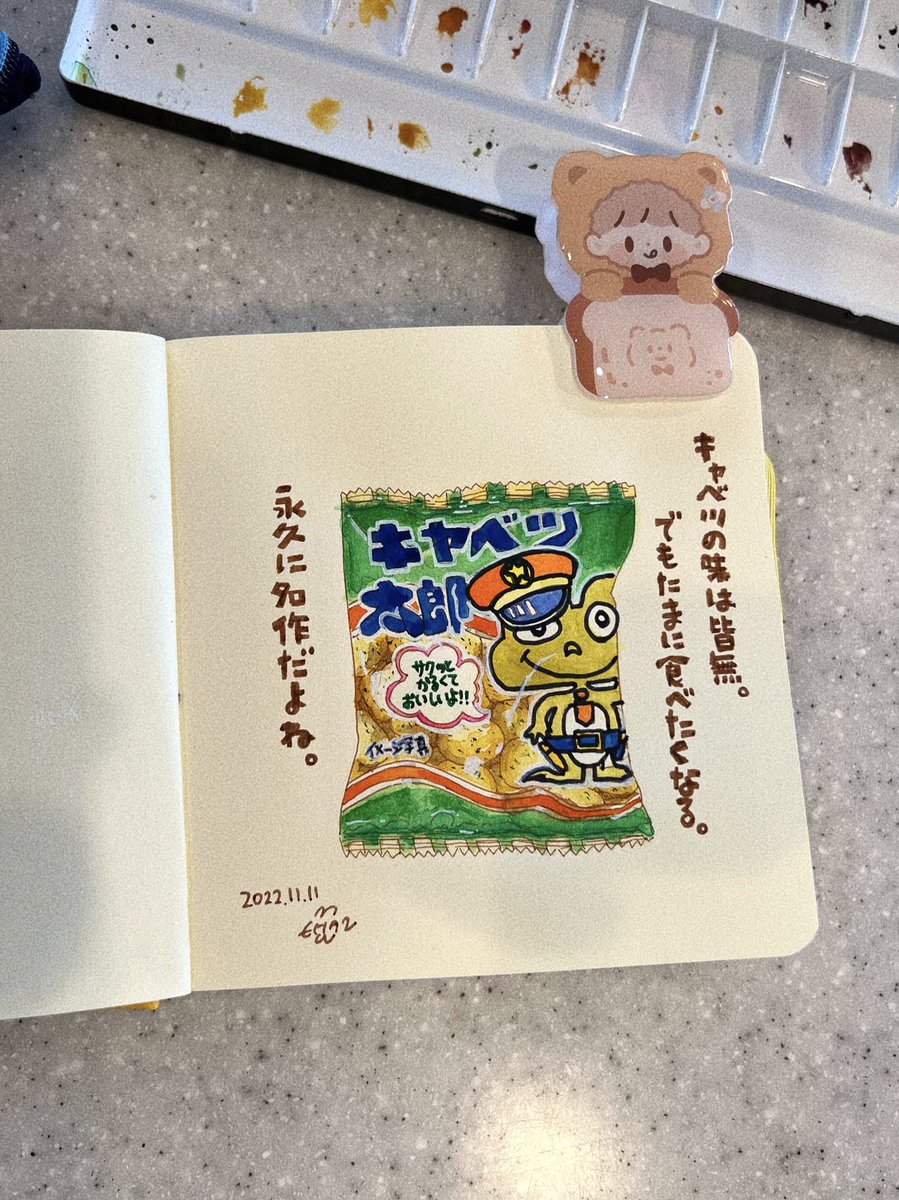 キャベツの味は皆無。
でもたまに食べたくなる。
キャベツ
太郎
サクッと
かるくて
おいしいよ!!
イメージ写真
永久に名作だよね。
2022.11.11